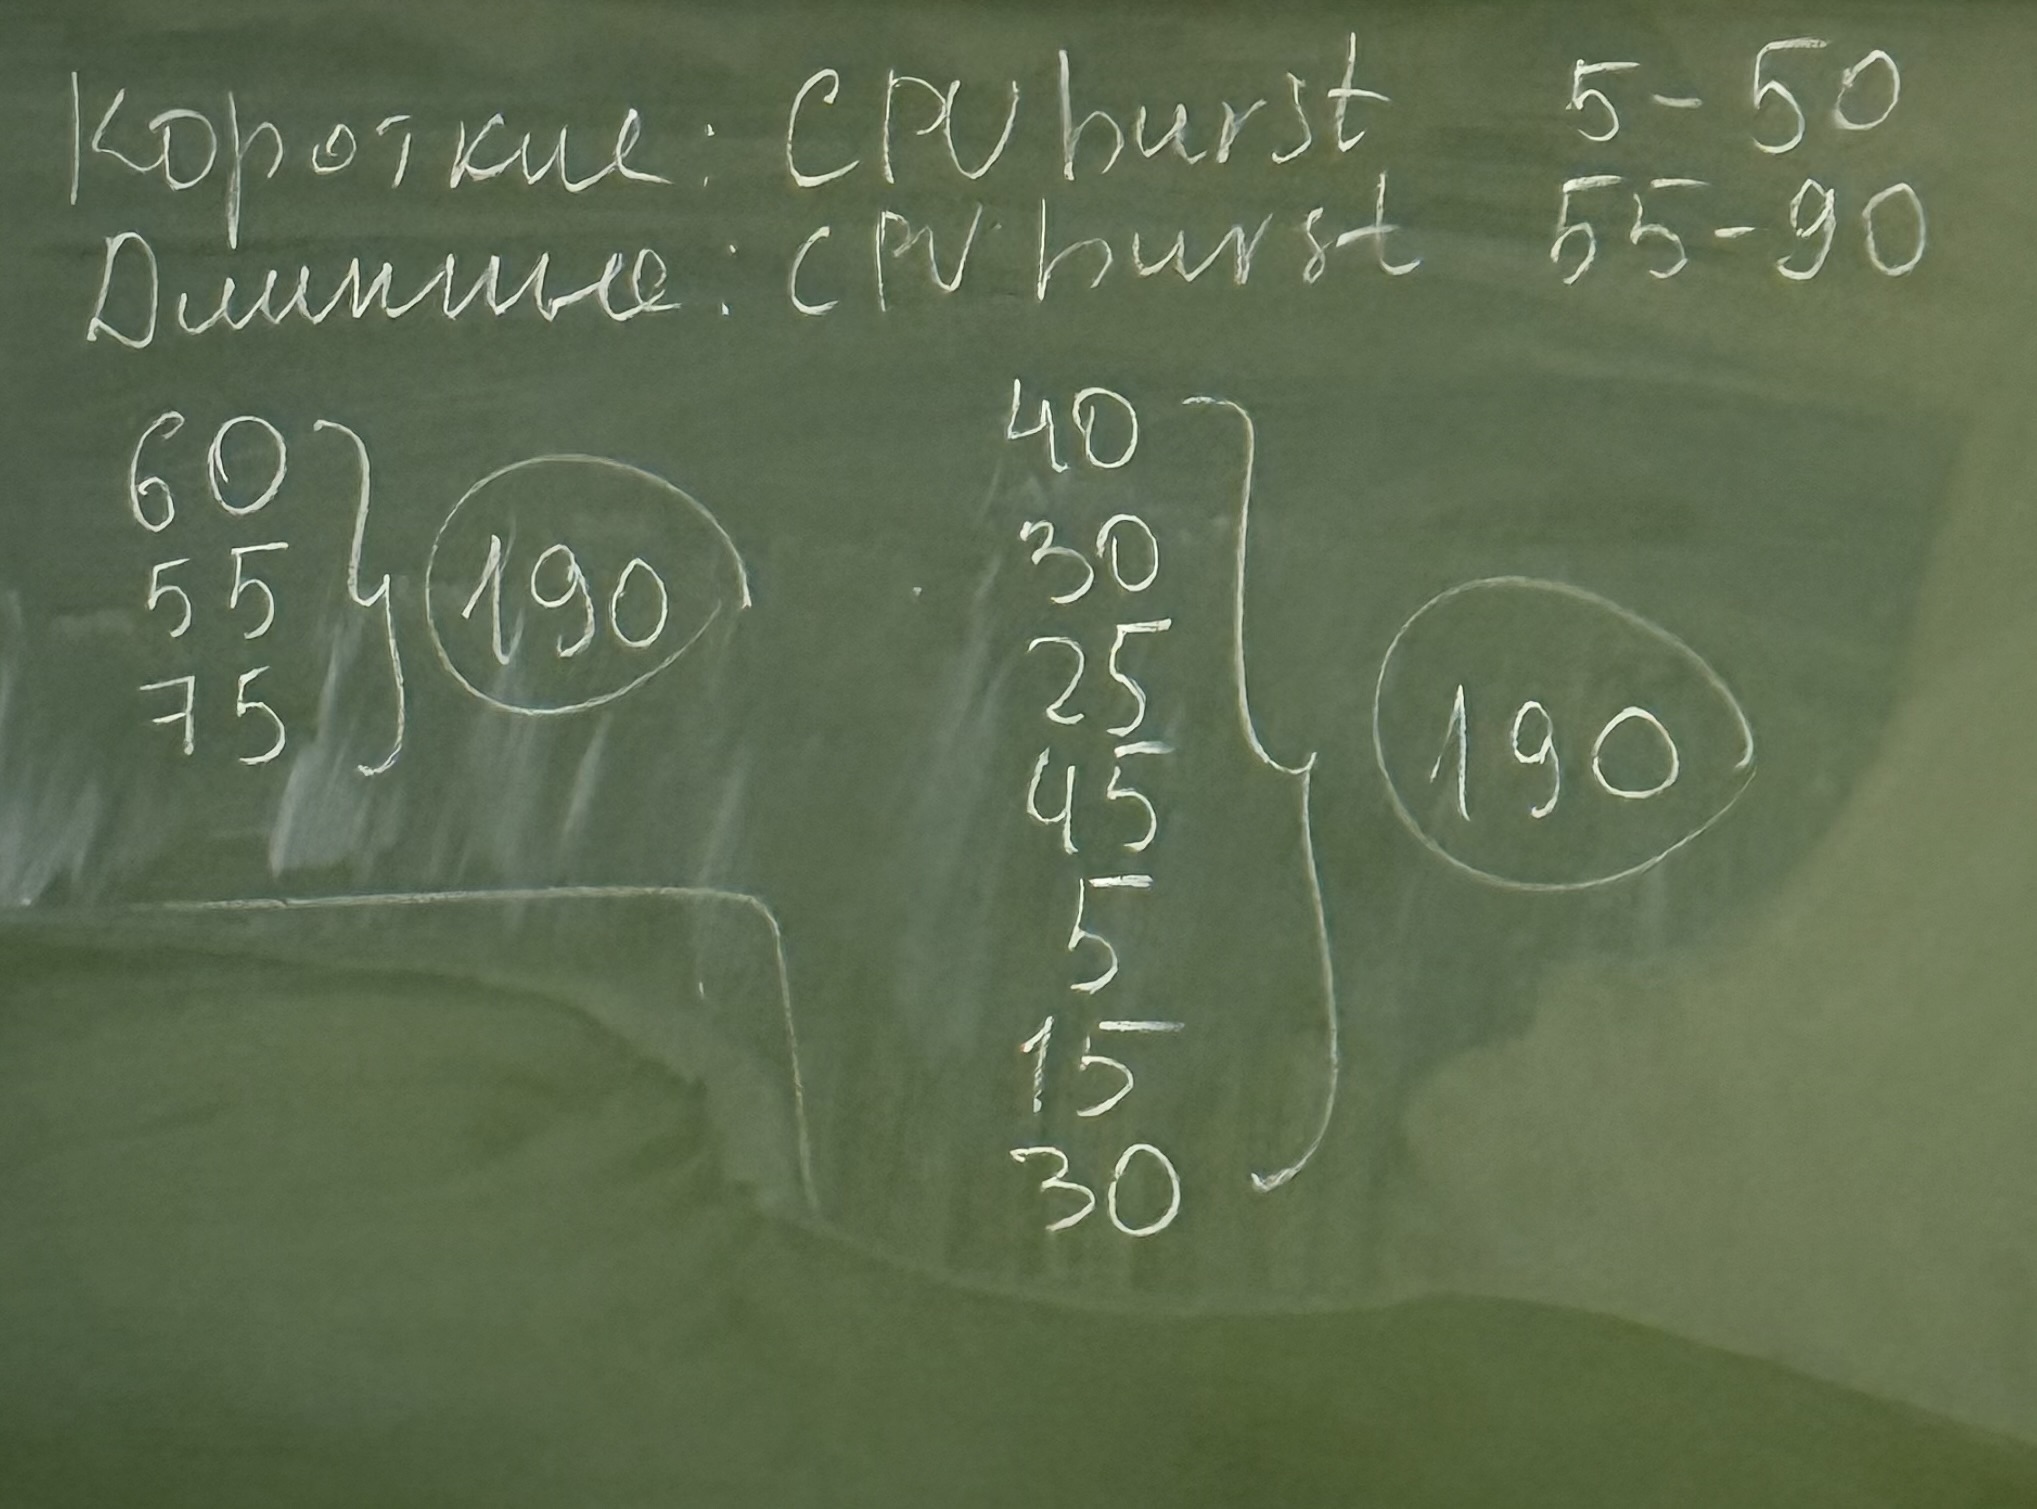 Короткие: CPU burst 5-50
Длинные: CPU burst 55-90
60
55
75
190
40
30
25
45
5
15
30
190